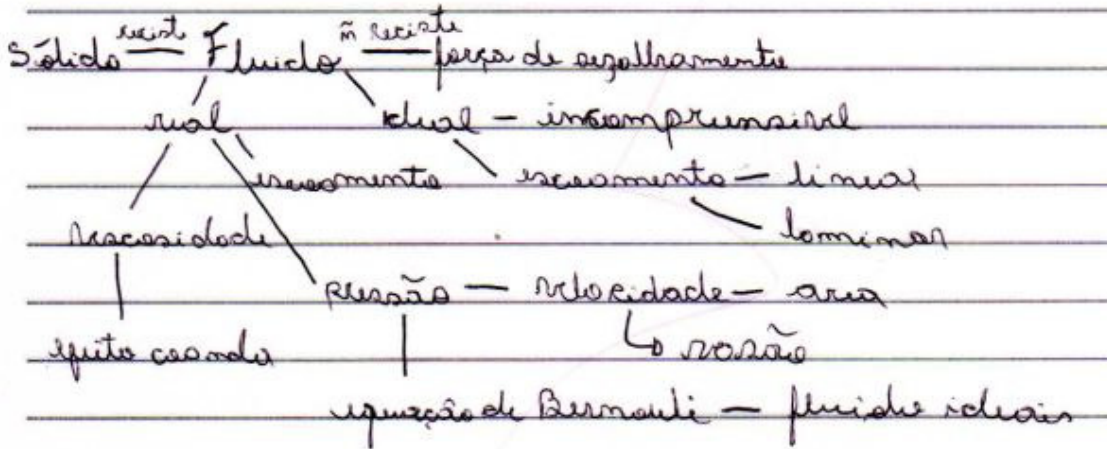 Sólido resiste Fluido ñ resiste força de cizalhamento
real ideal - incompreensivel
escoamento escoamento - linear
viscosidade laminar
pressão - velocidade - area
efeito coanda ↳ vazão
equação de Bernouli - fluidos ideais